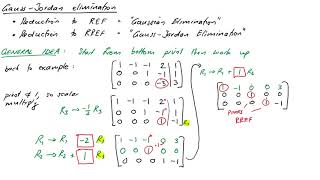 Gauss-Jordan elimination
• Reduction to REF = "Gaussian Elimination"
• Reduction to RREF = "Gauss-Jordan Elimination"
GENERAL IDEA: Start from bottom pivot then work up
back to example:
1 -1 -1 2 1
0 0 1 -1 1
0 0 0 -3 3
pivot ≠ 1, so scalar
multiply
R3 → -1/3 R3
1 -1 -1 2 1
0 0 1 -1 1
0 0 0 1 -1
R1 → R1 -2 R3
R2 → R2 + 1 R3
1 -1 -1 0 3
0 0 1 0 0
0 0 0 1 -1
R1 → R1 + 1 R2
1 -1 0 0 3
0 0 1 0 0
0 0 0 1 -1
pivots
RREF